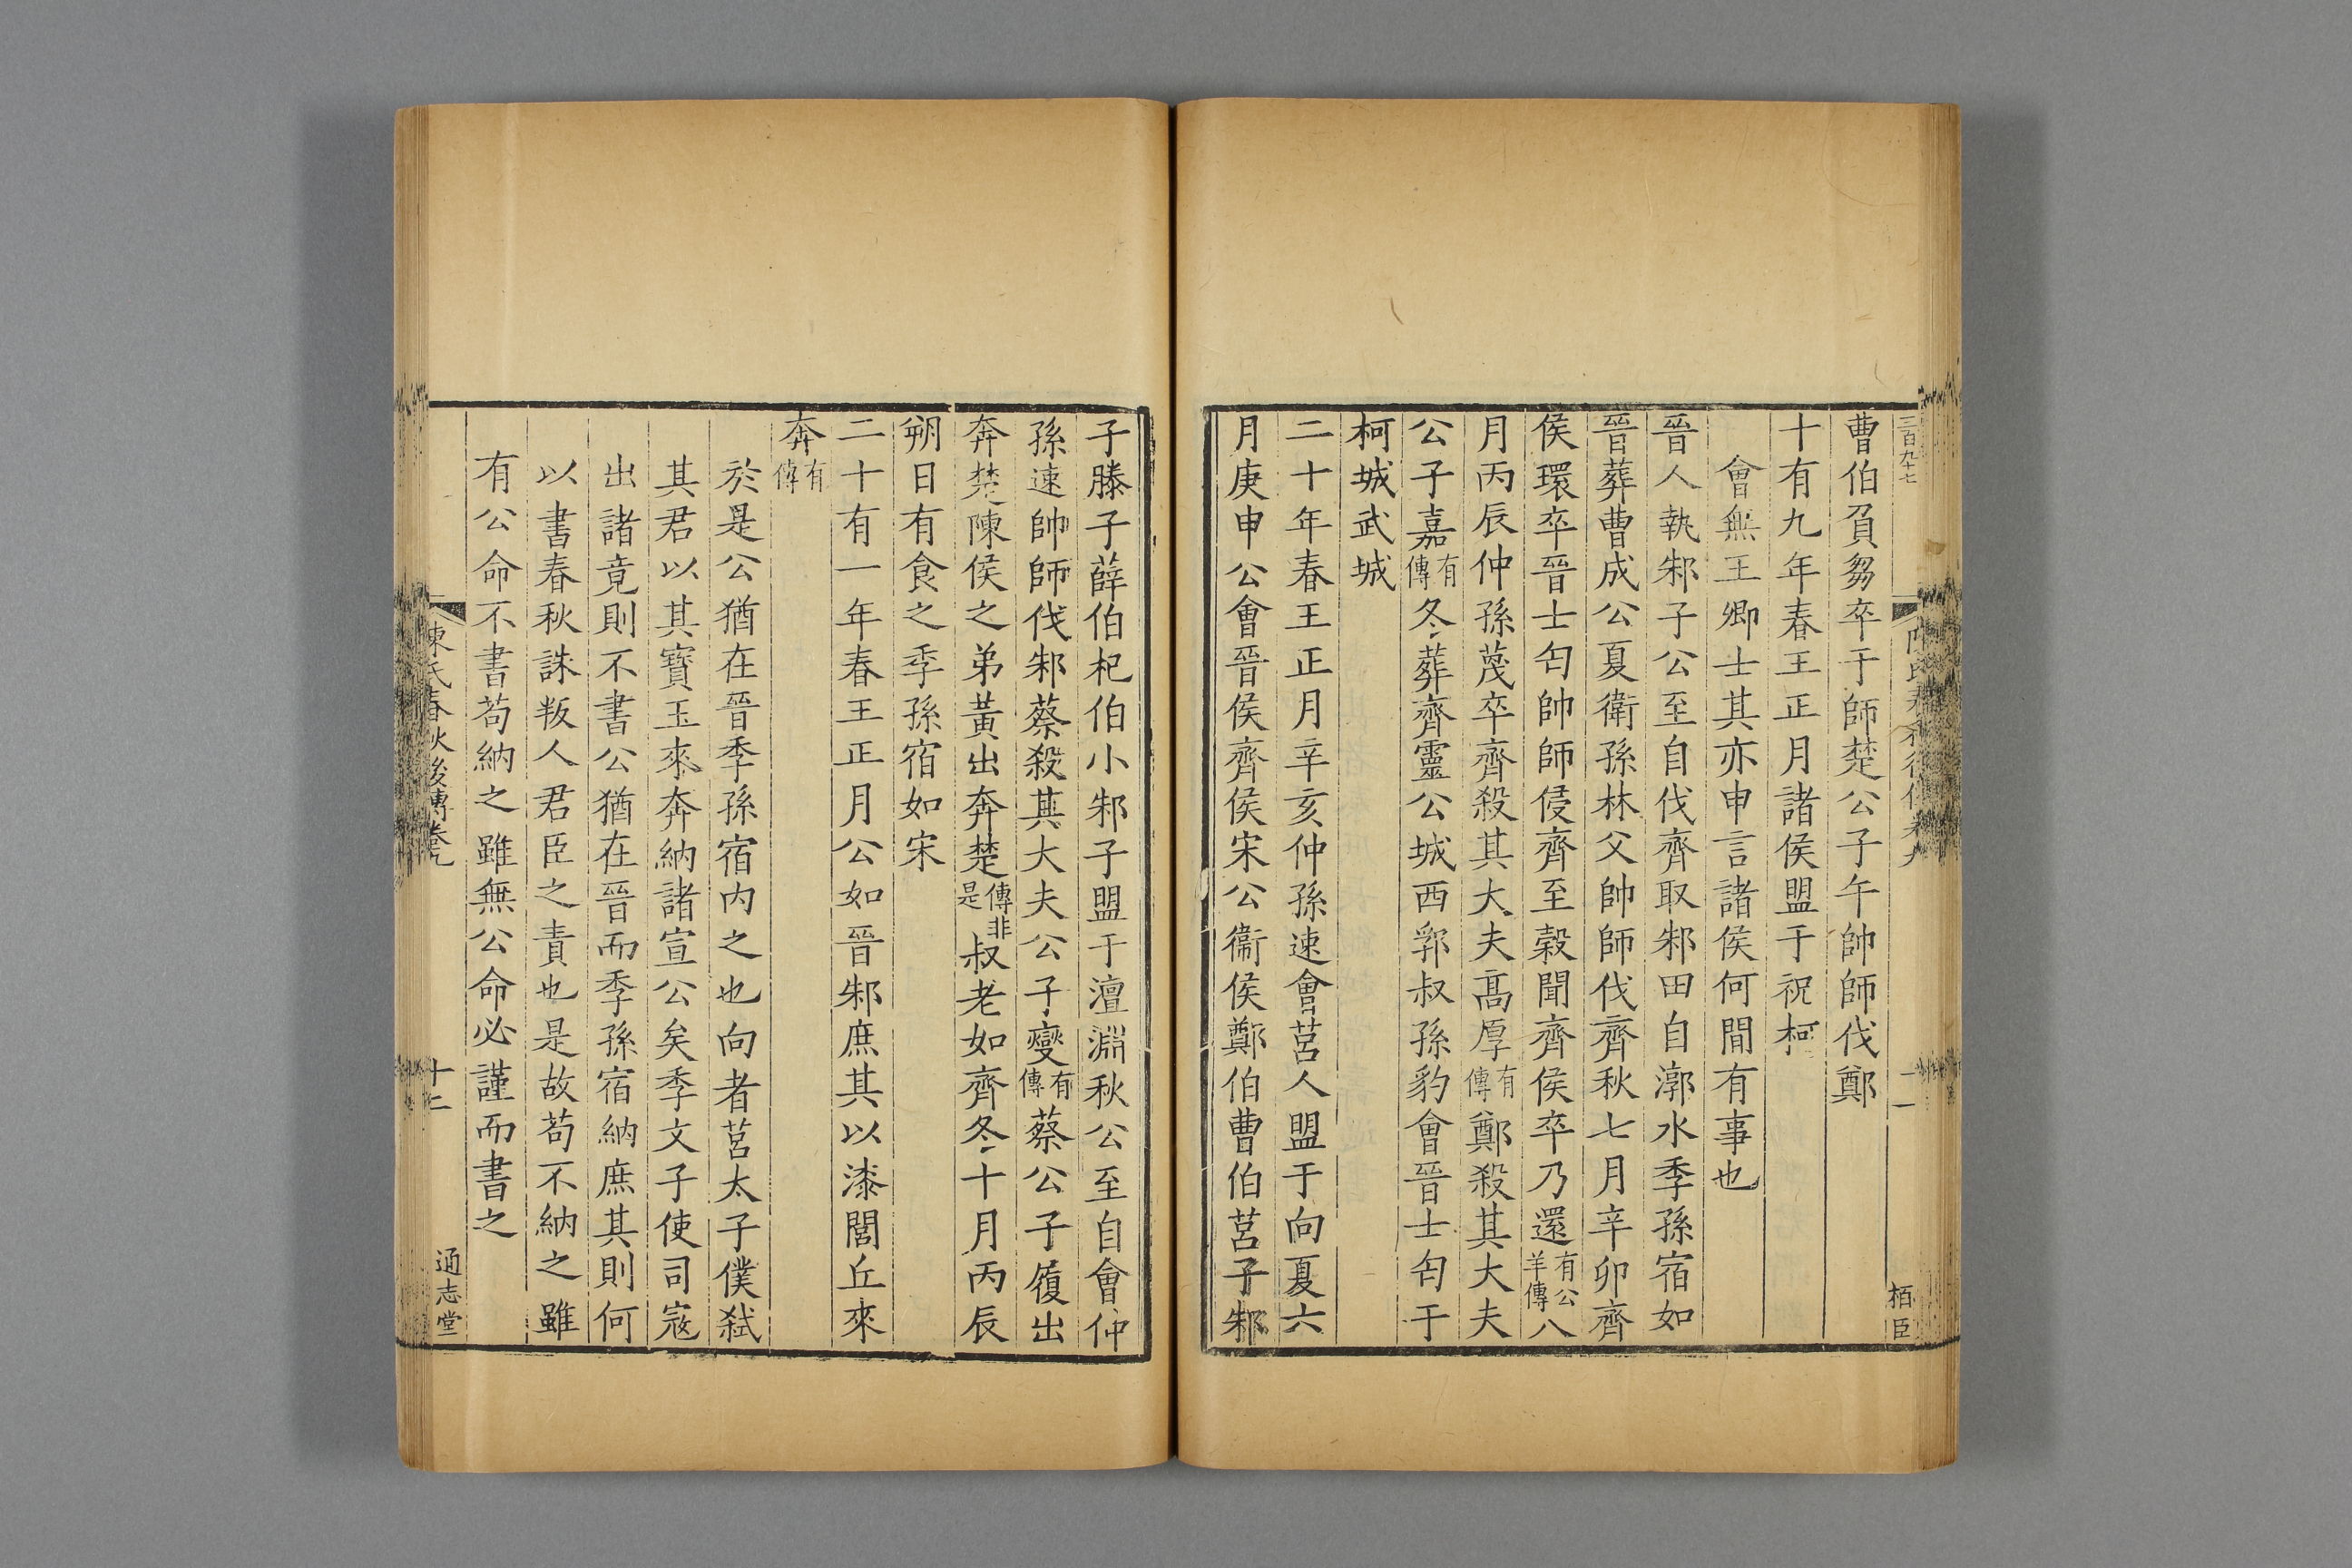 三百九十七
曹伯負芻卒于師楚公子午帥師伐鄭
十有九年春王正月諸侯盟于祝柯
會無王卿士其亦申言諸侯何間有事也
晉人執邾子公至自伐齊取邾田自漷水季孫宿如
晉葬曹成公夏衛孫林父帥師伐齊秋七月辛卯齊
侯環卒晉士匄帥師侵齊至穀聞齊侯卒乃還有公羊傳八
月丙辰仲孫蔑卒齊殺其大夫髙厚有傳鄭殺其大夫
公子嘉有傳冬葬齊靈公城西郛叔孫豹會晉士匄于
柯城武城
二十年春王正月辛亥仲孫速會莒人盟于向夏六
月庚申公會晉侯齊侯宋公衞侯鄭伯曹伯莒子邾
栢臣
子滕子薛伯杞伯小邾子盟于澶淵秋公至自會仲
孫速帥師伐邾蔡殺其大夫公子燮有傳蔡公子履出
奔楚陳侯之弟黃出奔楚傳非是叔老如齊冬十月丙辰
朔日有食之季孫宿如宋
二十有一年春王正月公如晉邾庶其以漆閭丘來
奔有傳
於是公猶在晉季孫宿内之也向者莒太子僕弑
其君以其寶玉來奔納諸宣公矣季文子使司寇
出諸竟則不書公猶在晉而季孫宿納庶其則何
以書春秋誅叛人君臣之責也是故苟不納之雖
有公命不書苟納之雖無公命必謹而書之
陳氏春秋後傳卷九
十二
通志堂